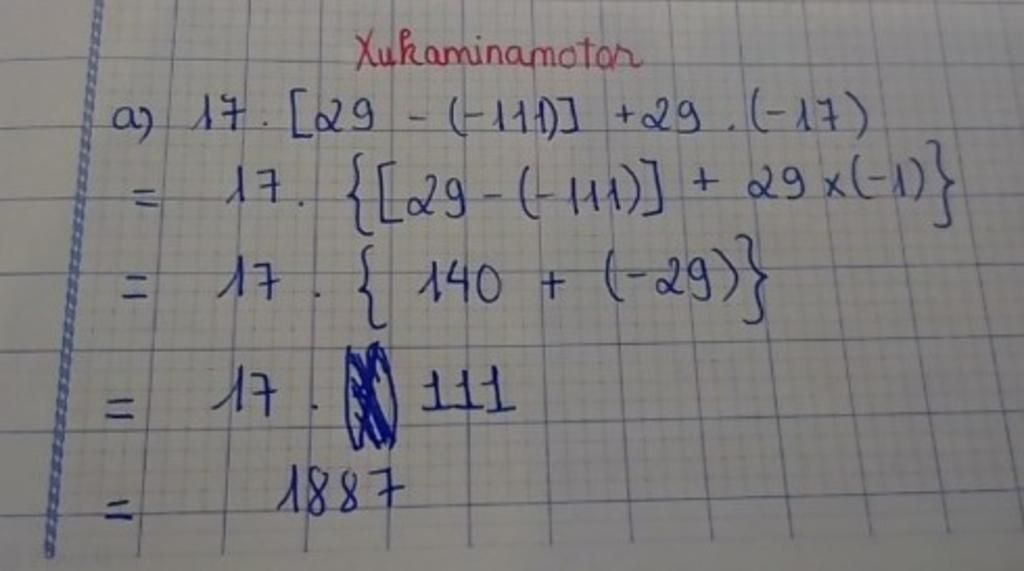 Xukaminamoton
a) 17 . [29 - (-111)] + 29 . (-17)
= 17 . {[29 - (-111)] + 29 x (-1)}
= 17 . { 140 + (-29)}
= 17 . 111
= 1887